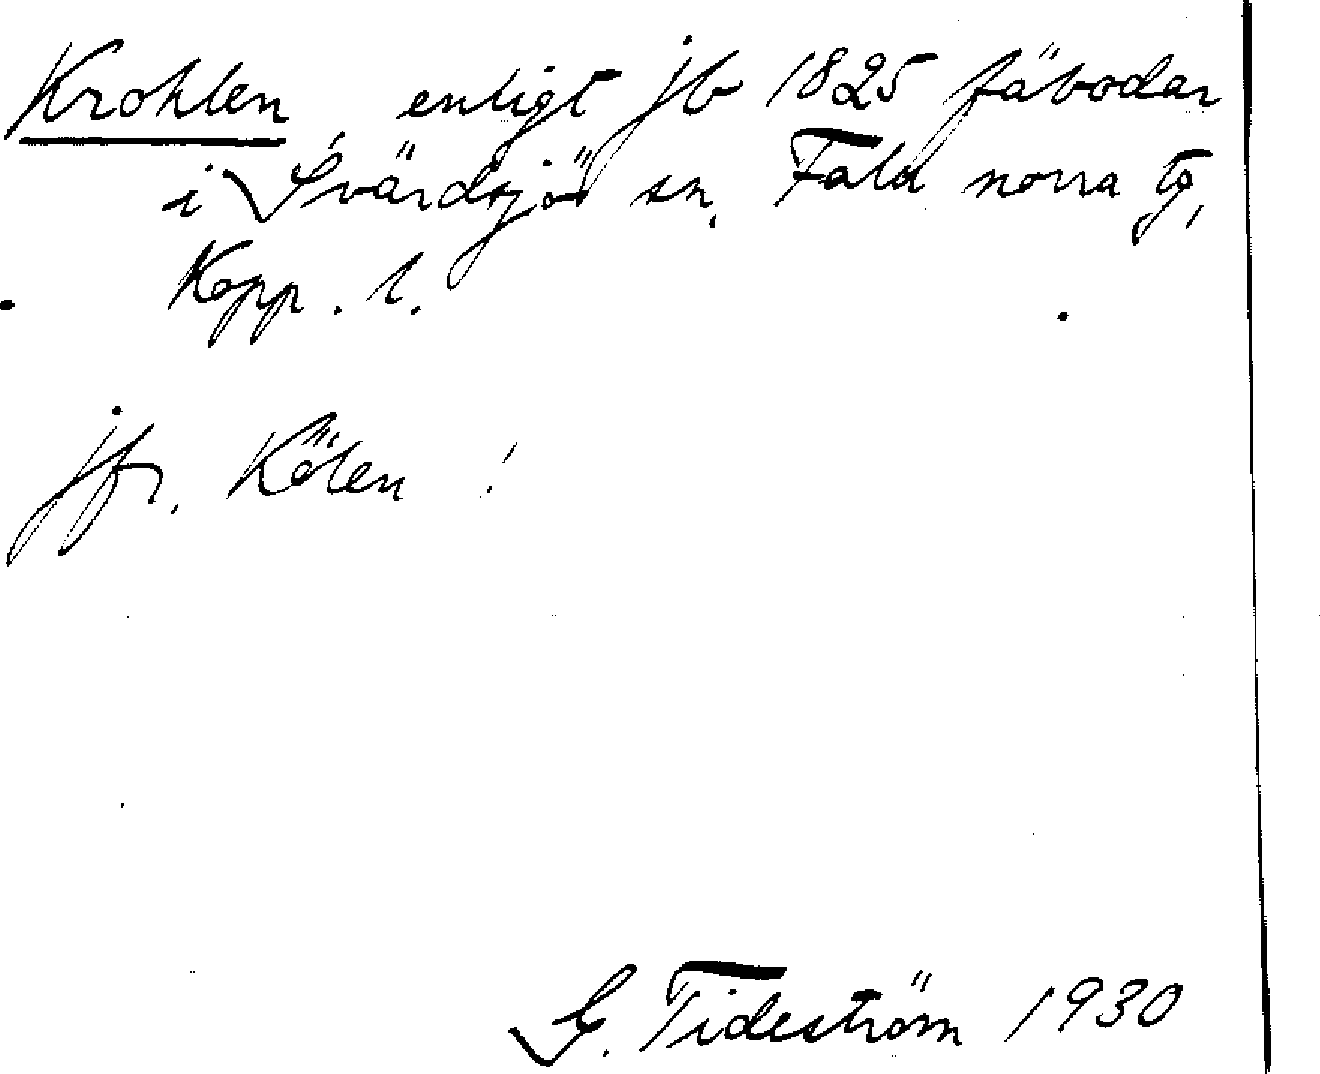 Krohlen enligt jb 1825 fäbodar
i Svärdsjö sn, Falu norra tg,
Kopp. l.
jfr. Kölen !
G. Tideström 1930